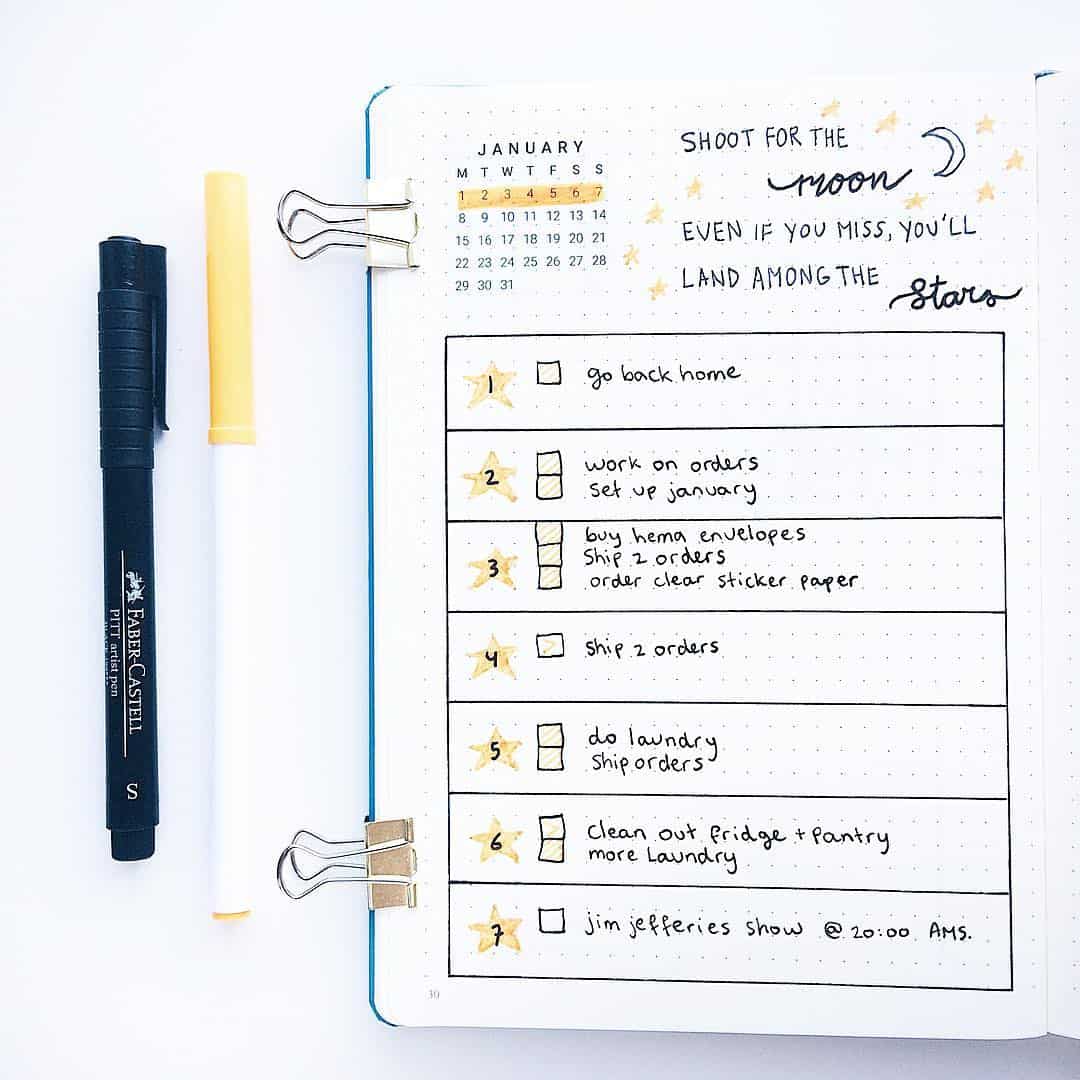 JANUARY
M T W T F S S
1 2 3 4 5 6 7
8 9 10 11 12 13 14
15 16 17 18 19 20 21
22 23 24 25 26 27 28
29 30 31
SHOOT FOR THE
moon
EVEN IF YOU MISS, YOU'LL
LAND AMONG THE
Stars
1 go back home
2 work on orders
set up january
3 buy hema envelopes
Ship 2 orders
order clear sticker paper
4 Ship 2 orders
5 do laundry
Ship orders
6 clean out fridge + pantry
more laundry
7 jim jefferies show @ 20:00 AMS.
30
FABER-CASTELL
PITT artist pen
S